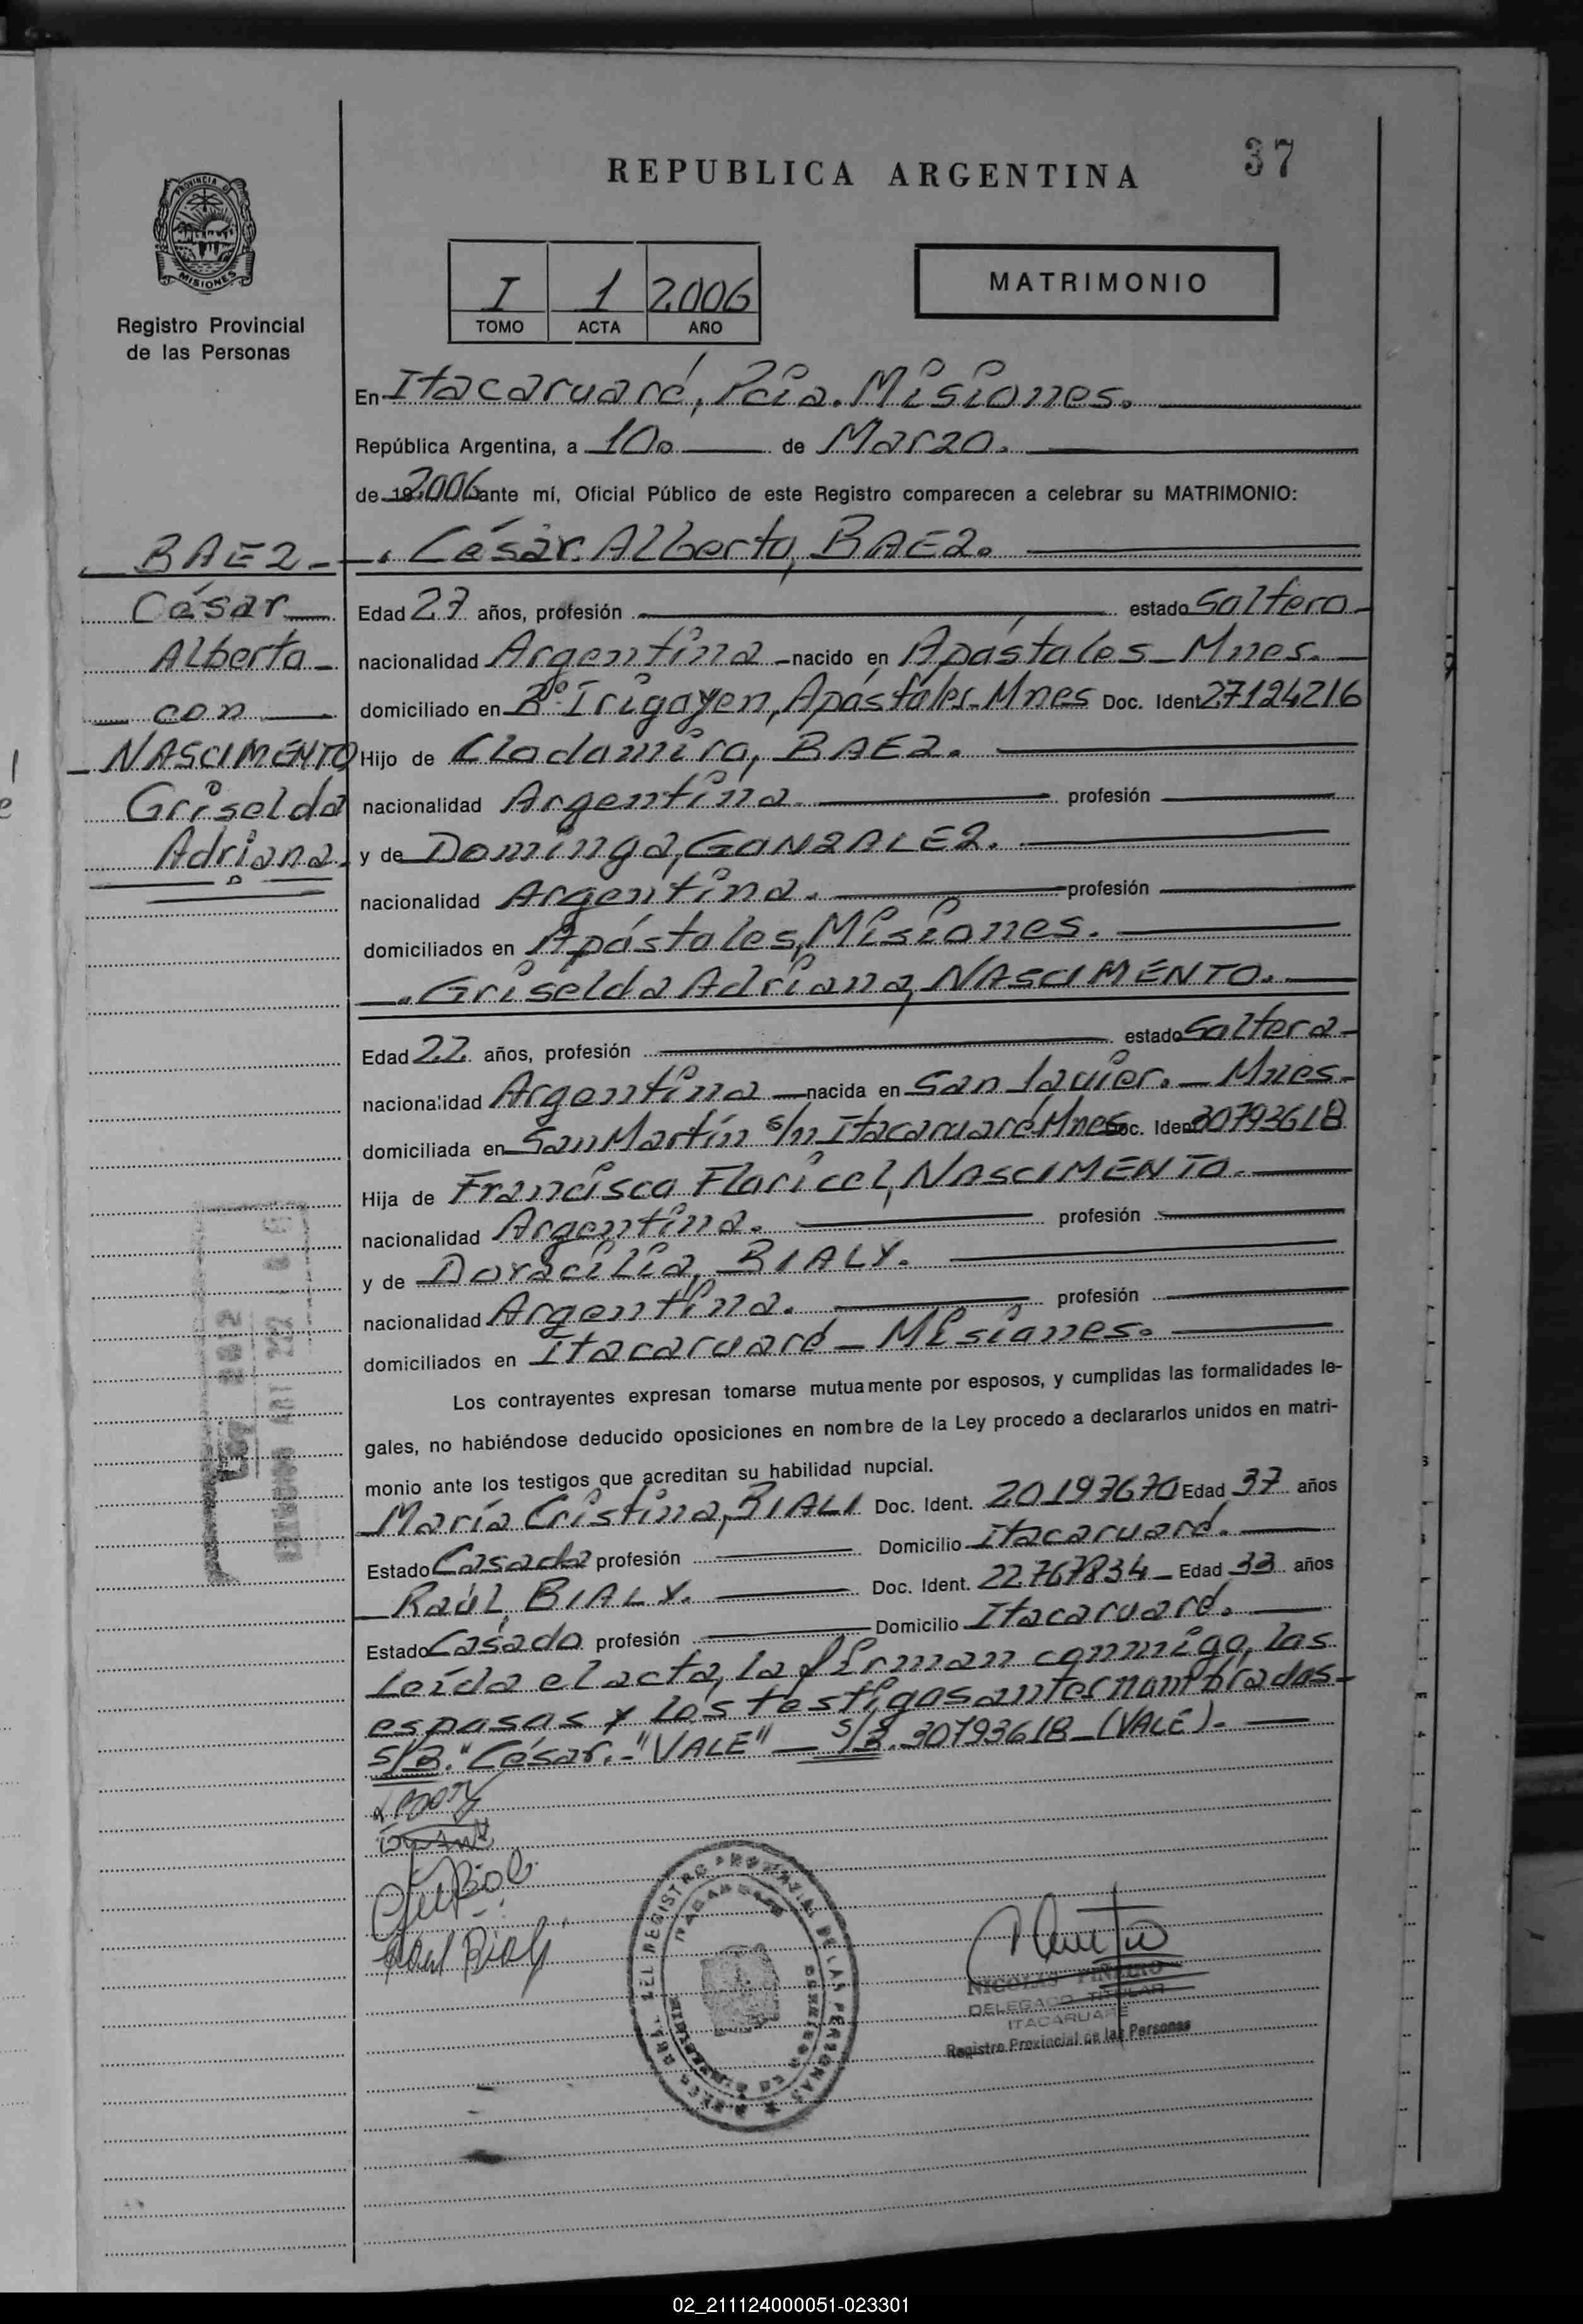 REPUBLICA ARGENTINA
37
PROVINCIA DE
MISIONES
Registro Provincial
de las Personas
I 1 2006
TOMO ACTA AÑO
MATRIMONIO
En Itacaruaré, Pcia. Misiones.
República Argentina, a 10. de Marzo.
de 19 2006 ante mí, Oficial Público de este Registro comparecen a celebrar su MATRIMONIO:
BAEZ
César
Alberto
con
NASCIMENTO
Griselda
Adriana
César Alberto, BAEZ.
Edad 27 años, profesión estado Soltero
nacionalidad Argentina nacido en Apóstoles Mnes.
domiciliado en Bº Irigoyen, Apóstoles-Mnes Doc. Ident 27124216
Hijo de Clodomiro, BAEZ.
nacionalidad Argentina. profesión
y de Dominga, GONZALEZ.
nacionalidad Argentina. profesión
domiciliados en Apóstoles, Misiones.
Griselda Adriana, NASCIMENTO.
Edad 22 años, profesión estado Soltera
nacionalidad Argentina nacida en San Javier. - Mnes-
domiciliada en San Martín s/n Itacaruaré Mnes Doc. Ident 30793618
Hija de Francisco Floricel, NASCIMENTO.
nacionalidad Argentina. profesión
y de Doracilia, BIALY.
nacionalidad Argentina. profesión
domiciliados en Itacaruaré - Misiones.
Los contrayentes expresan tomarse mutuamente por esposos, y cumplidas las formalidades le-
gales, no habiéndose deducido oposiciones en nombre de la Ley procedo a declararlos unidos en matri-
monio ante los testigos que acreditan su habilidad nupcial.
María Cristina, BIALI Doc. Ident. 20197670 Edad 37 años
Estado Casada profesión Domicilio Itacaruaré.
Raúl, BIALY. Doc. Ident. 22767834 Edad 33 años
Estado Casado profesión Domicilio Itacaruaré.
Leída el acta, la firman conmigo, los
esposos y los testigos antes nombrados-
S/B. "César. "VALE" - S/B. 30793618 (VALE).
Raul Biali
NICOLAS PIÑEIRO
DELEGADO TITULAR
ITACARUARE
Registro Provincial de las Personas
02_211124000051-023301